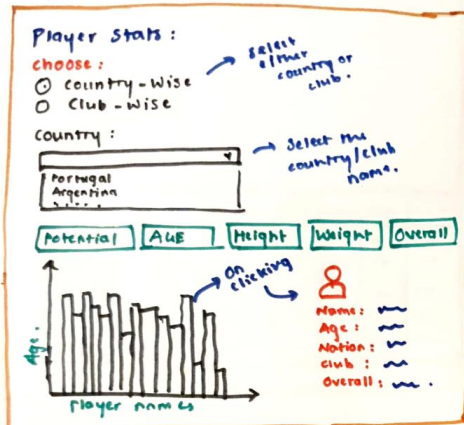 Player Stats :
choose :
Country - Wise
Club - Wise
select
either
country or
club.
Country :
Portugal
Argentina
Select the
country/club
name.
Potential
AGE
Height
Weight
Overall
On
clicking
Age.
Player names
Name :
Age :
Nation :
club :
Overall :